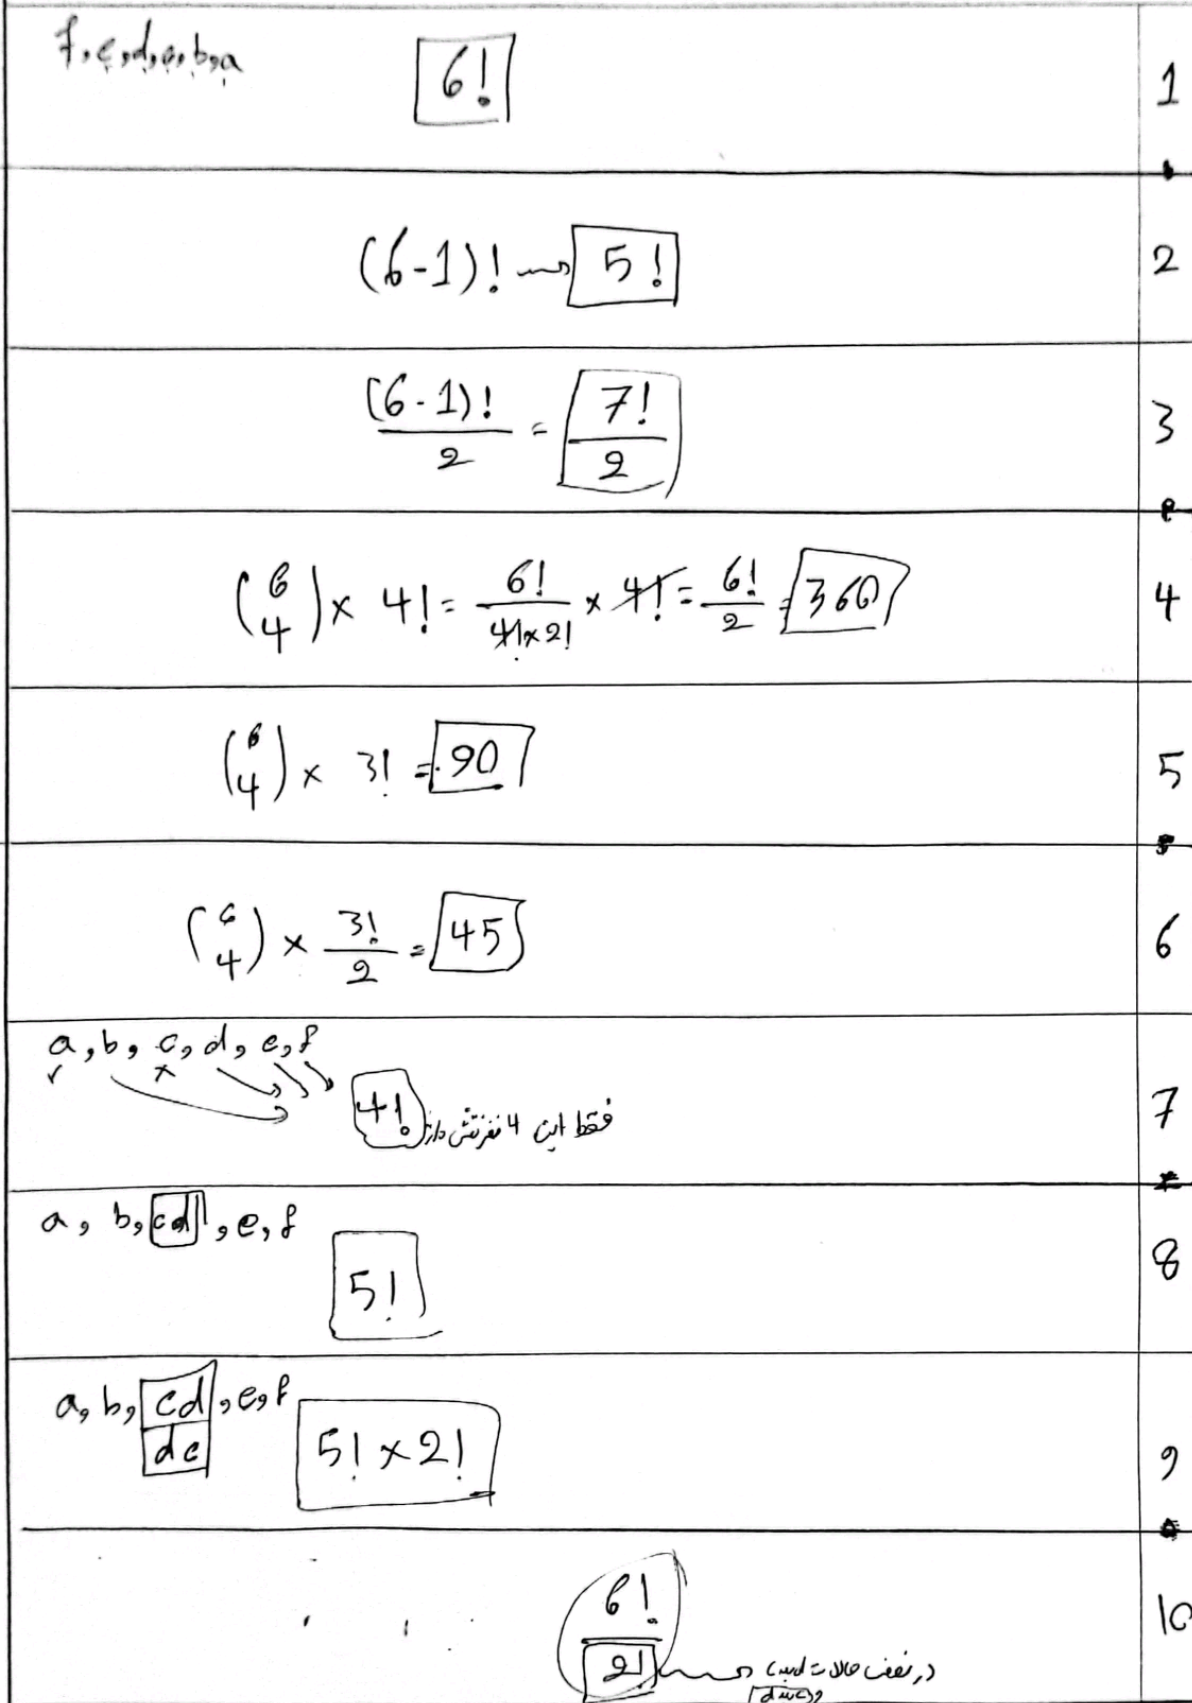 f, e, d, c, b, a
6!
1
(6-1)! → 5!
2
(6-1)!/2 = 7!/2
3
(6 4) × 4! = 6!/4!×2! × 4! = 6!/2 = 360
4
(6 4) × 3! = 90
5
(6 4) × 3!/2 = 45
6
a, b, c, d, e, f
✓ ×
4! فقط این 4 نفر نقش دارند
7
a, b, cd, e, f
5!
8
a, b, cd, e, f
dc
5! × 2!
9
6!/2!
در نصف حالات
10